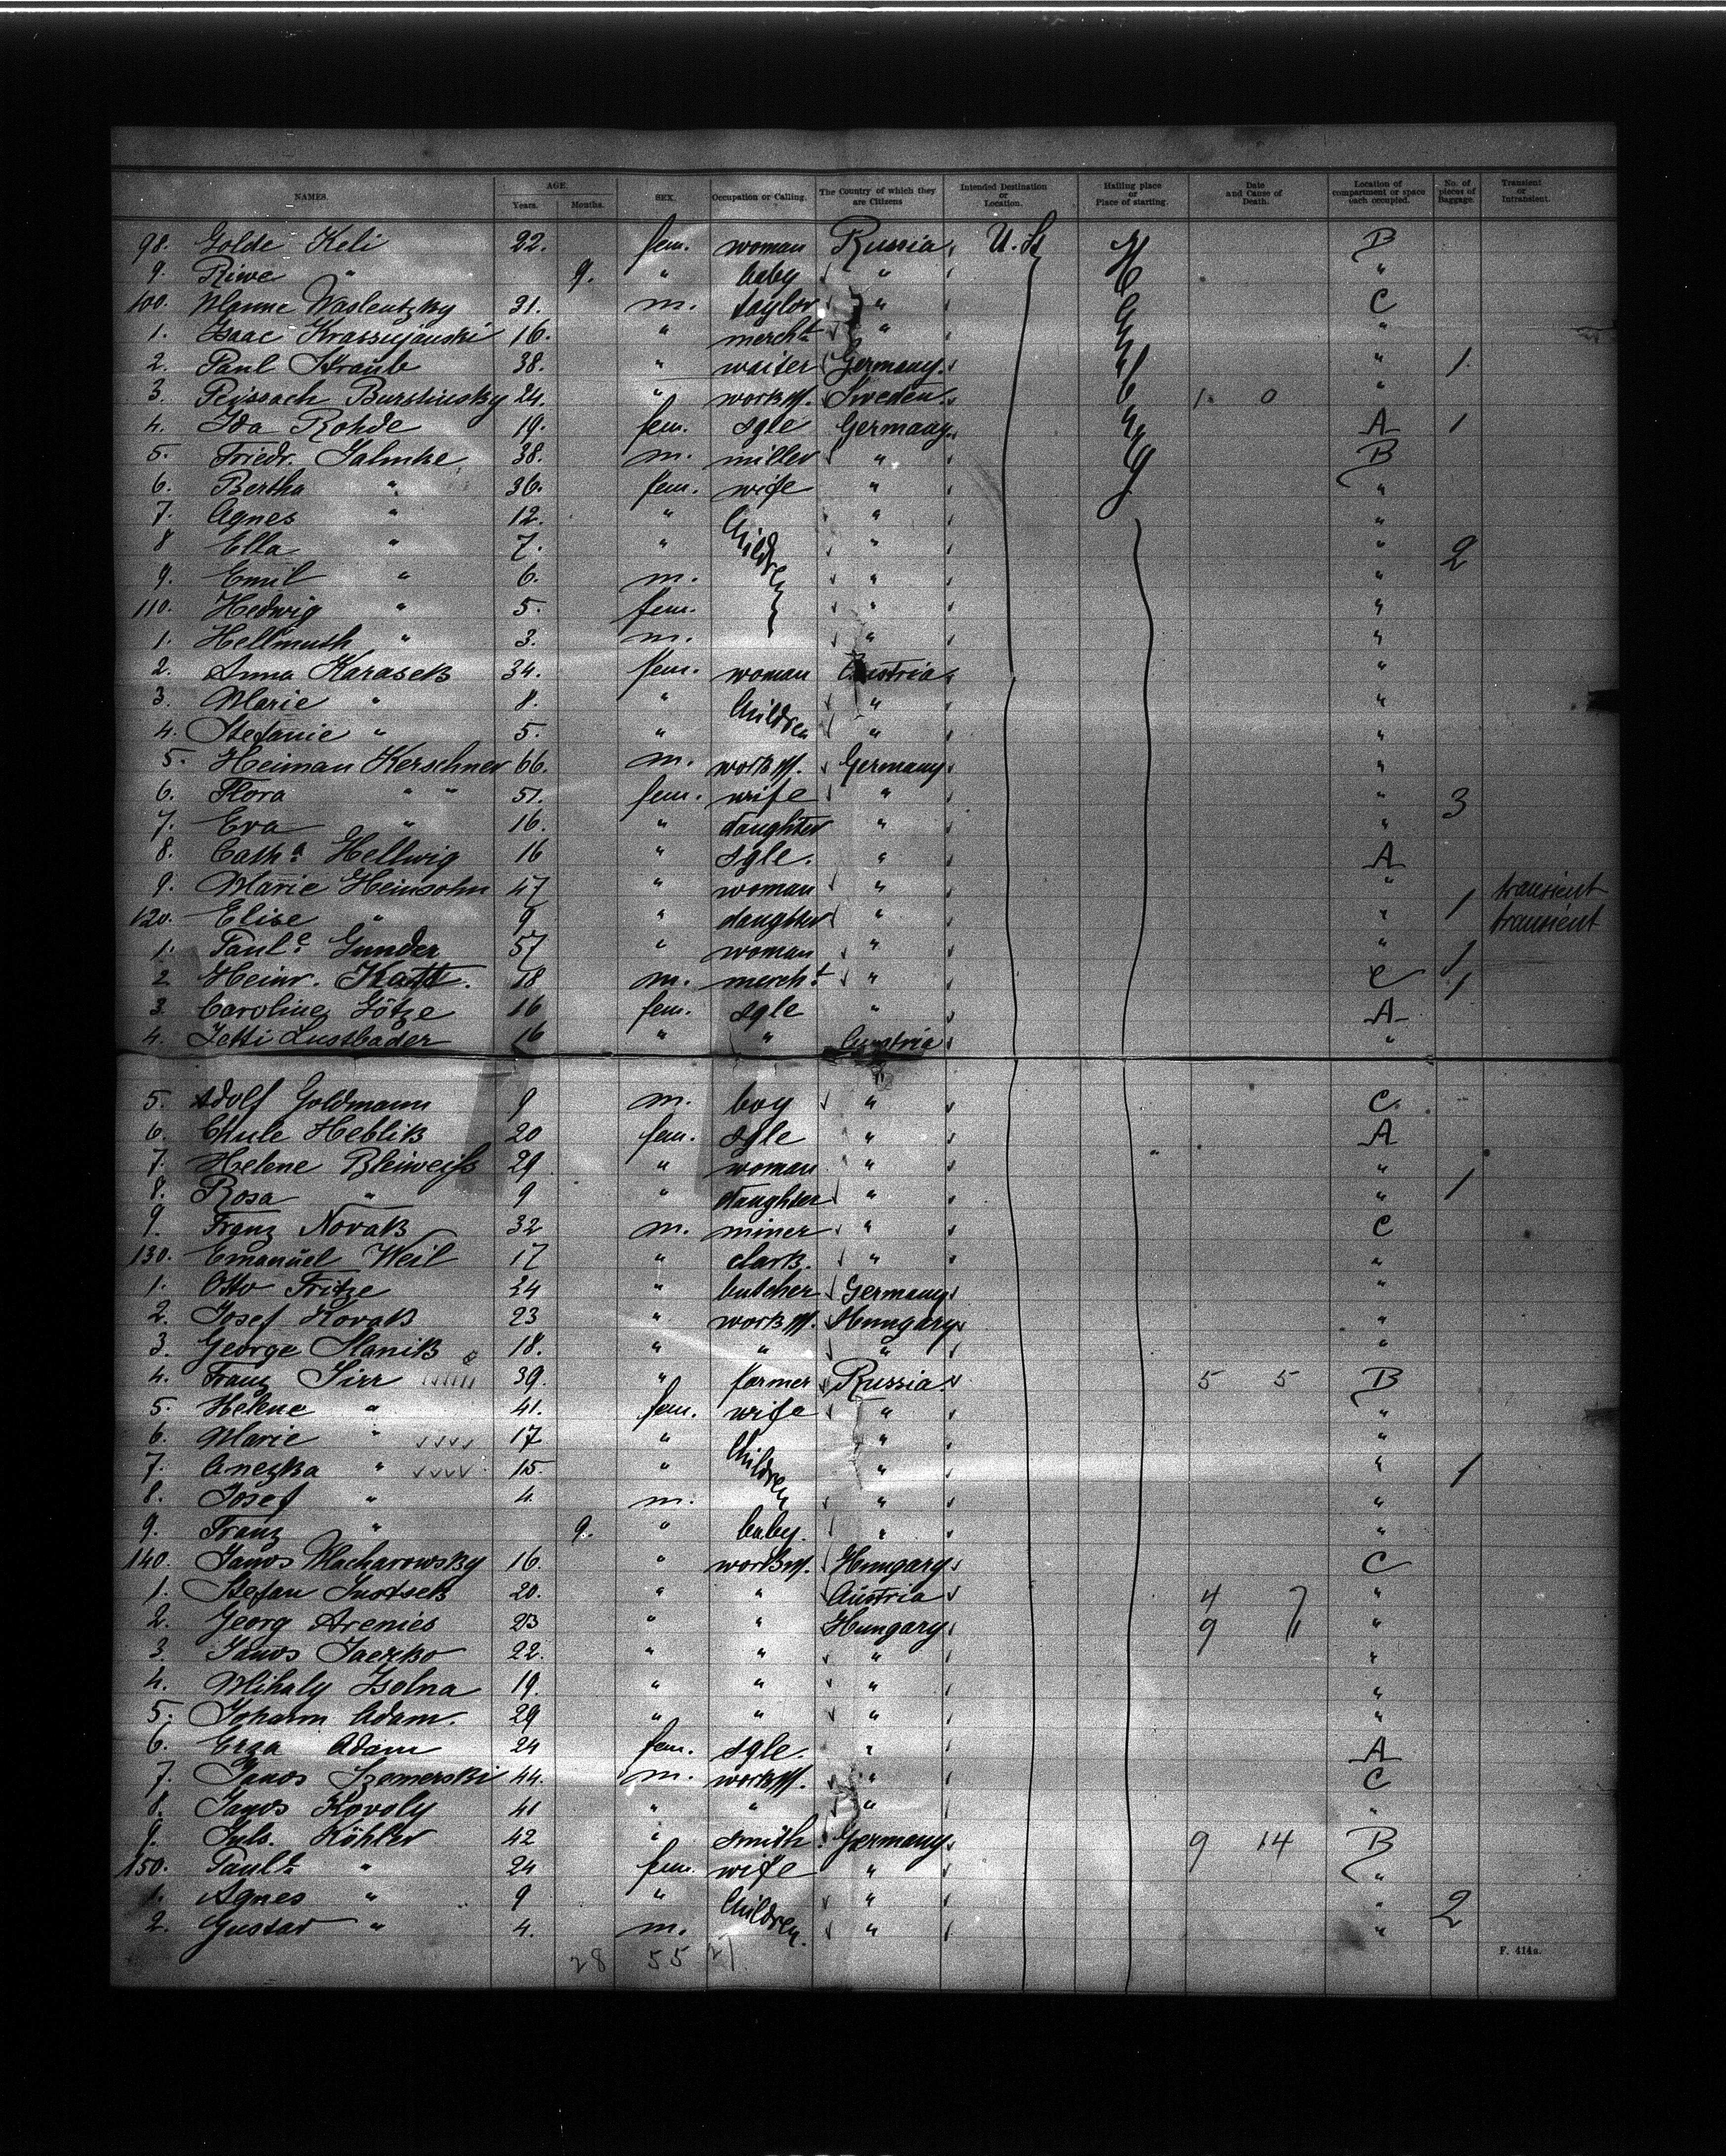 NAMES. AGE. Years. Months. SEX. Occupation or Calling. The Country of which they are Citizens Intended Destination or Location. Hailing place or Place of starting. Date and Cause of Death. Location of compartment or space each occupied. No. of pieces of Baggage. Transient or Intransient.
98. Golde Keli 22. fem. woman Russia U. St. B
9. Riwe " 9. " baby " "
100. 31. m. taylor " C
1. Isaac 16. " mercht " "
2. Paul Straub 38. " waiter Germany. " 1.
3. Peissach Burstinsky 24. " workm. Sweden. 1. 0 "
4. Ida Rohde 19. fem. sgle Germany. A 1
5. Friedr. Jahnke 38. m. miller " B
6. Bertha " 36. fem. wife " "
7. Agnes " 12. " Children " "
8 Ella " 7. " " " 2
9. Emil " 6. m. " "
110. Hedwig " 5. fem. " "
1. Hellmuth " 3. m. " "
2. Anna Karasek 34. fem. woman Austria "
3. Marie " 8. " Children " "
4. Stefanie " 5. " " "
5. Heiman Kerschner 66. m. workm. Germany "
6. Flora " " 51. fem. wife " " 3
7. Eva " 16. " daughter " "
8. Cath.a Hellwig 16 " sgle. " A
9. Marie Heinsohn 47 " woman " " transient
120. Elise " 9 " daughter " " 1 transient
1. Paul.e Gunder 57 " woman " " 1
2 Heinr. Katt. 18 m. mercht " C 1
3. Caroline Götze 16 fem. sgle " A
4. Jetti Lustbader 16 " " Austria "
5. Adolf Goldmann 9 m. boy " C.
6. Chule Heblik 20 fem. sgle " A
7. Helene Bleiweiss 29 " woman " "
8. Rosa " 9 " daughter " " 1
9. Franz Novak 32 m. miner " C
130. Emanuel Weil 17 " clark. " "
1. Otto Fritze 24 " butcher Germany "
2. Josef Kovak 23 " workm. Hungary "
3. George Hanik 18. " " " "
4. Franz Sirr 39. " farmer Russia. 5 5 B
5. Helene " 41. fem. wife " "
6. Marie " 17 " Children " "
7. Anezka " 15. " " " 1
8. Josef " 4. m. " "
9. Franz " 9. " baby. " "
140. Janos Macharowsky 16. " workm. Hungary C
1. Stefan 20. " " Austria 4 7 "
2. Georg Arenies 23 " " Hungary 9 11 "
3. Janos Jaczko 22. " " " "
4. Mihaly Isolna 19. " " " "
5. Johann Adam. 29 " " " "
6. Erza Adam 24 fem. sgle. " A
7. Janos Szemerski 44. m. workm. " C
8. Janos Kovoly 41 " " " "
9. Juls. Köhler 42 " smith. Germany. 9 14 B
150. Paul.e " 24 fem. wife " "
1. Agnes " 9 " Children. " "
2. Gustav " 4. m. " " 2
28 55 21 F. 414a.